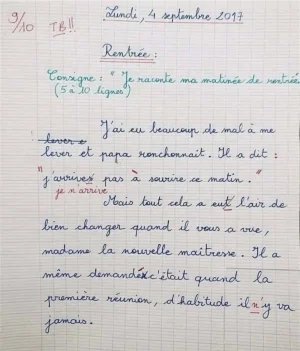 9/10 TB!!
Lundi, 4 septembre 2017
Rentrée :
Consigne : "Je raconte ma matinée de rentrée
(5 à 10 lignes)
J'ai eu beaucoup de mal à me
lever e
lever et papa ronchonnait. Il a dit :
"j'arrives pas à sourire ce matin."
je n'arrive
Mais tout cela a eut l'air de
bien changer quand il vous a vue,
madame la nouvelle maîtresse. Il a
même demandé c'était quand la
première réunion, d'habitude il n'y va
jamais.